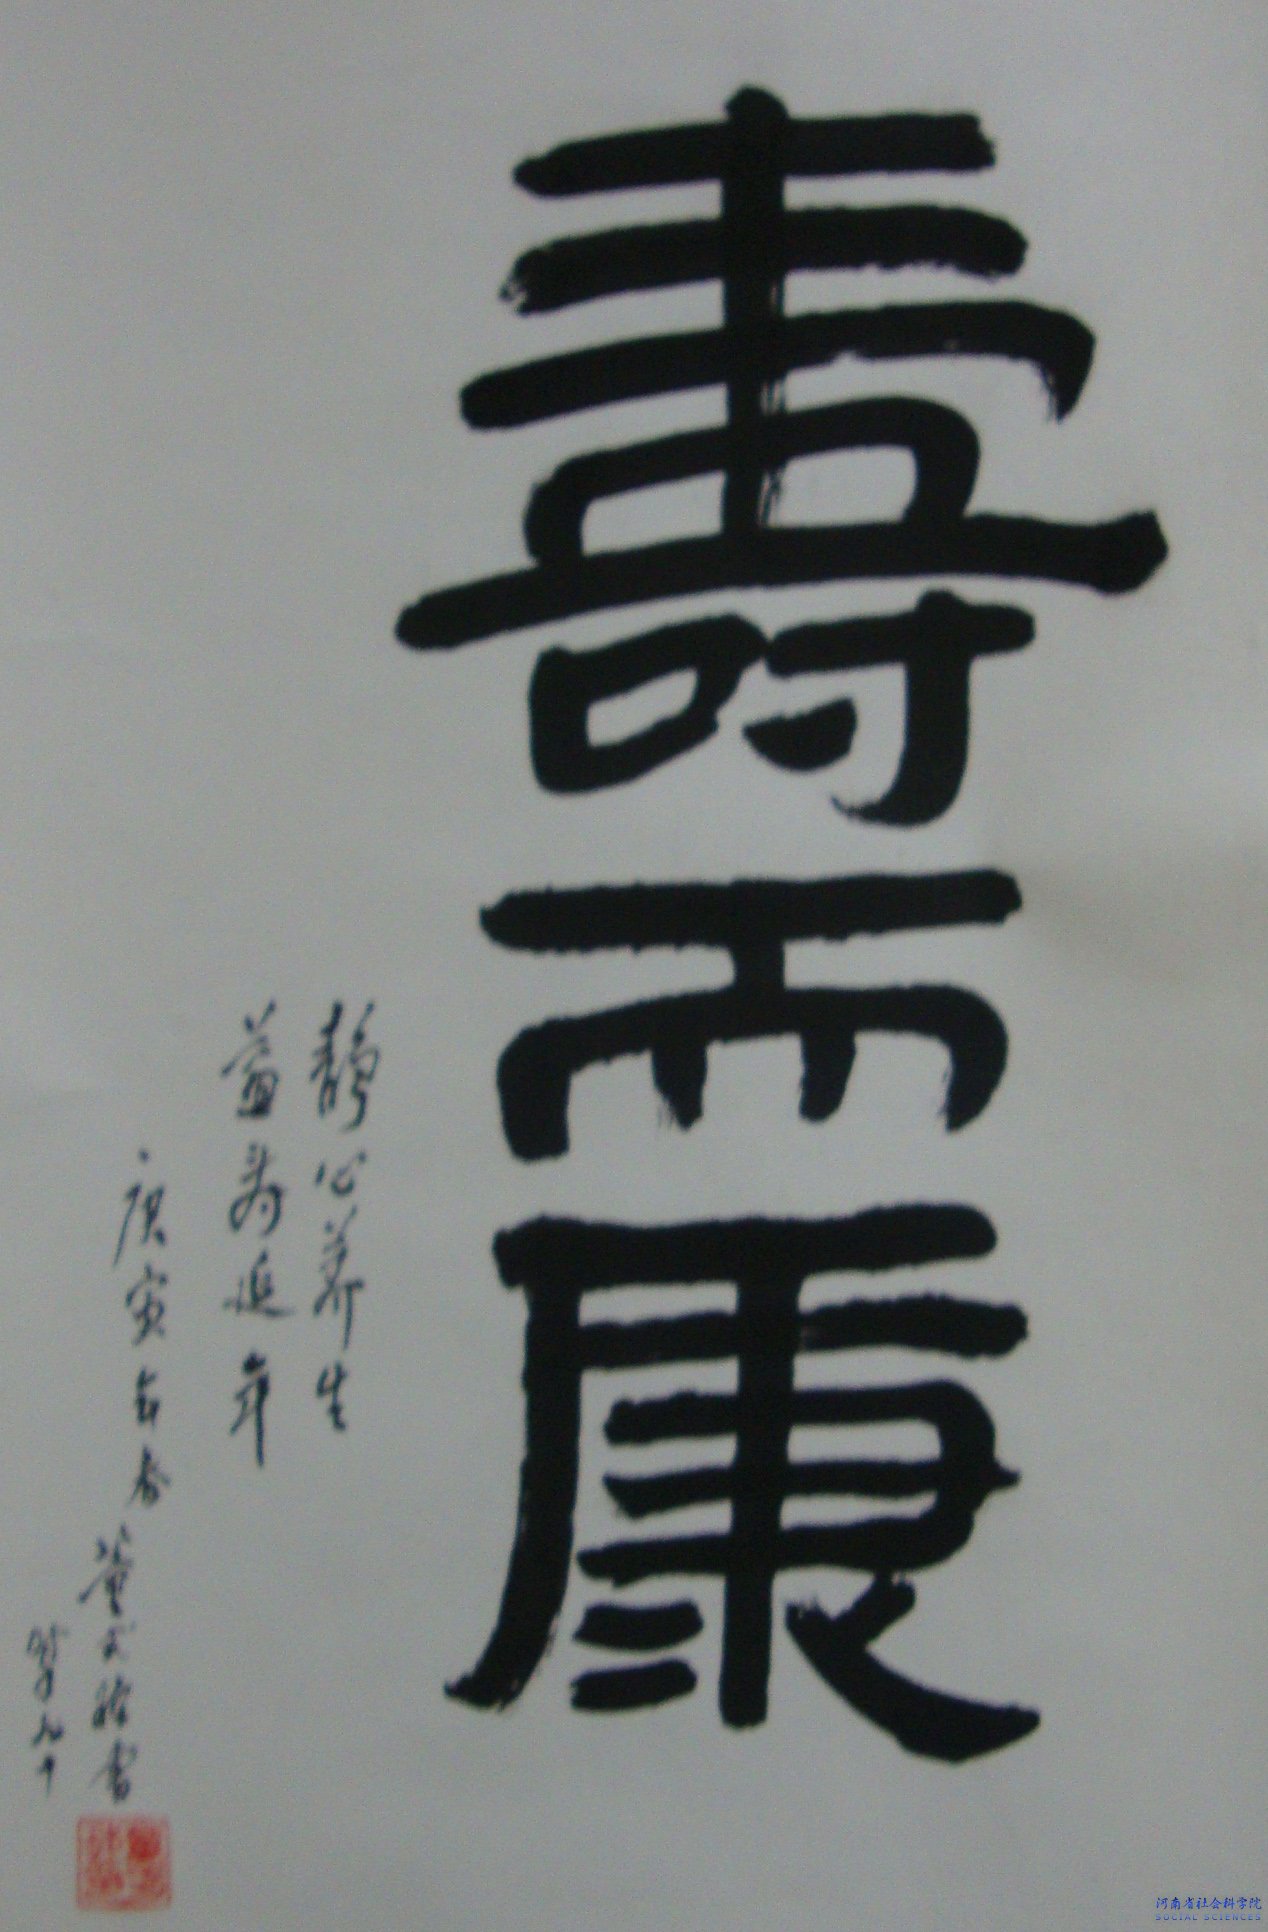 壽而康
静心养生
益寿延年
庚寅年春
董
书
年九十
河南省社会科学院
SOCIAL SCIENCES